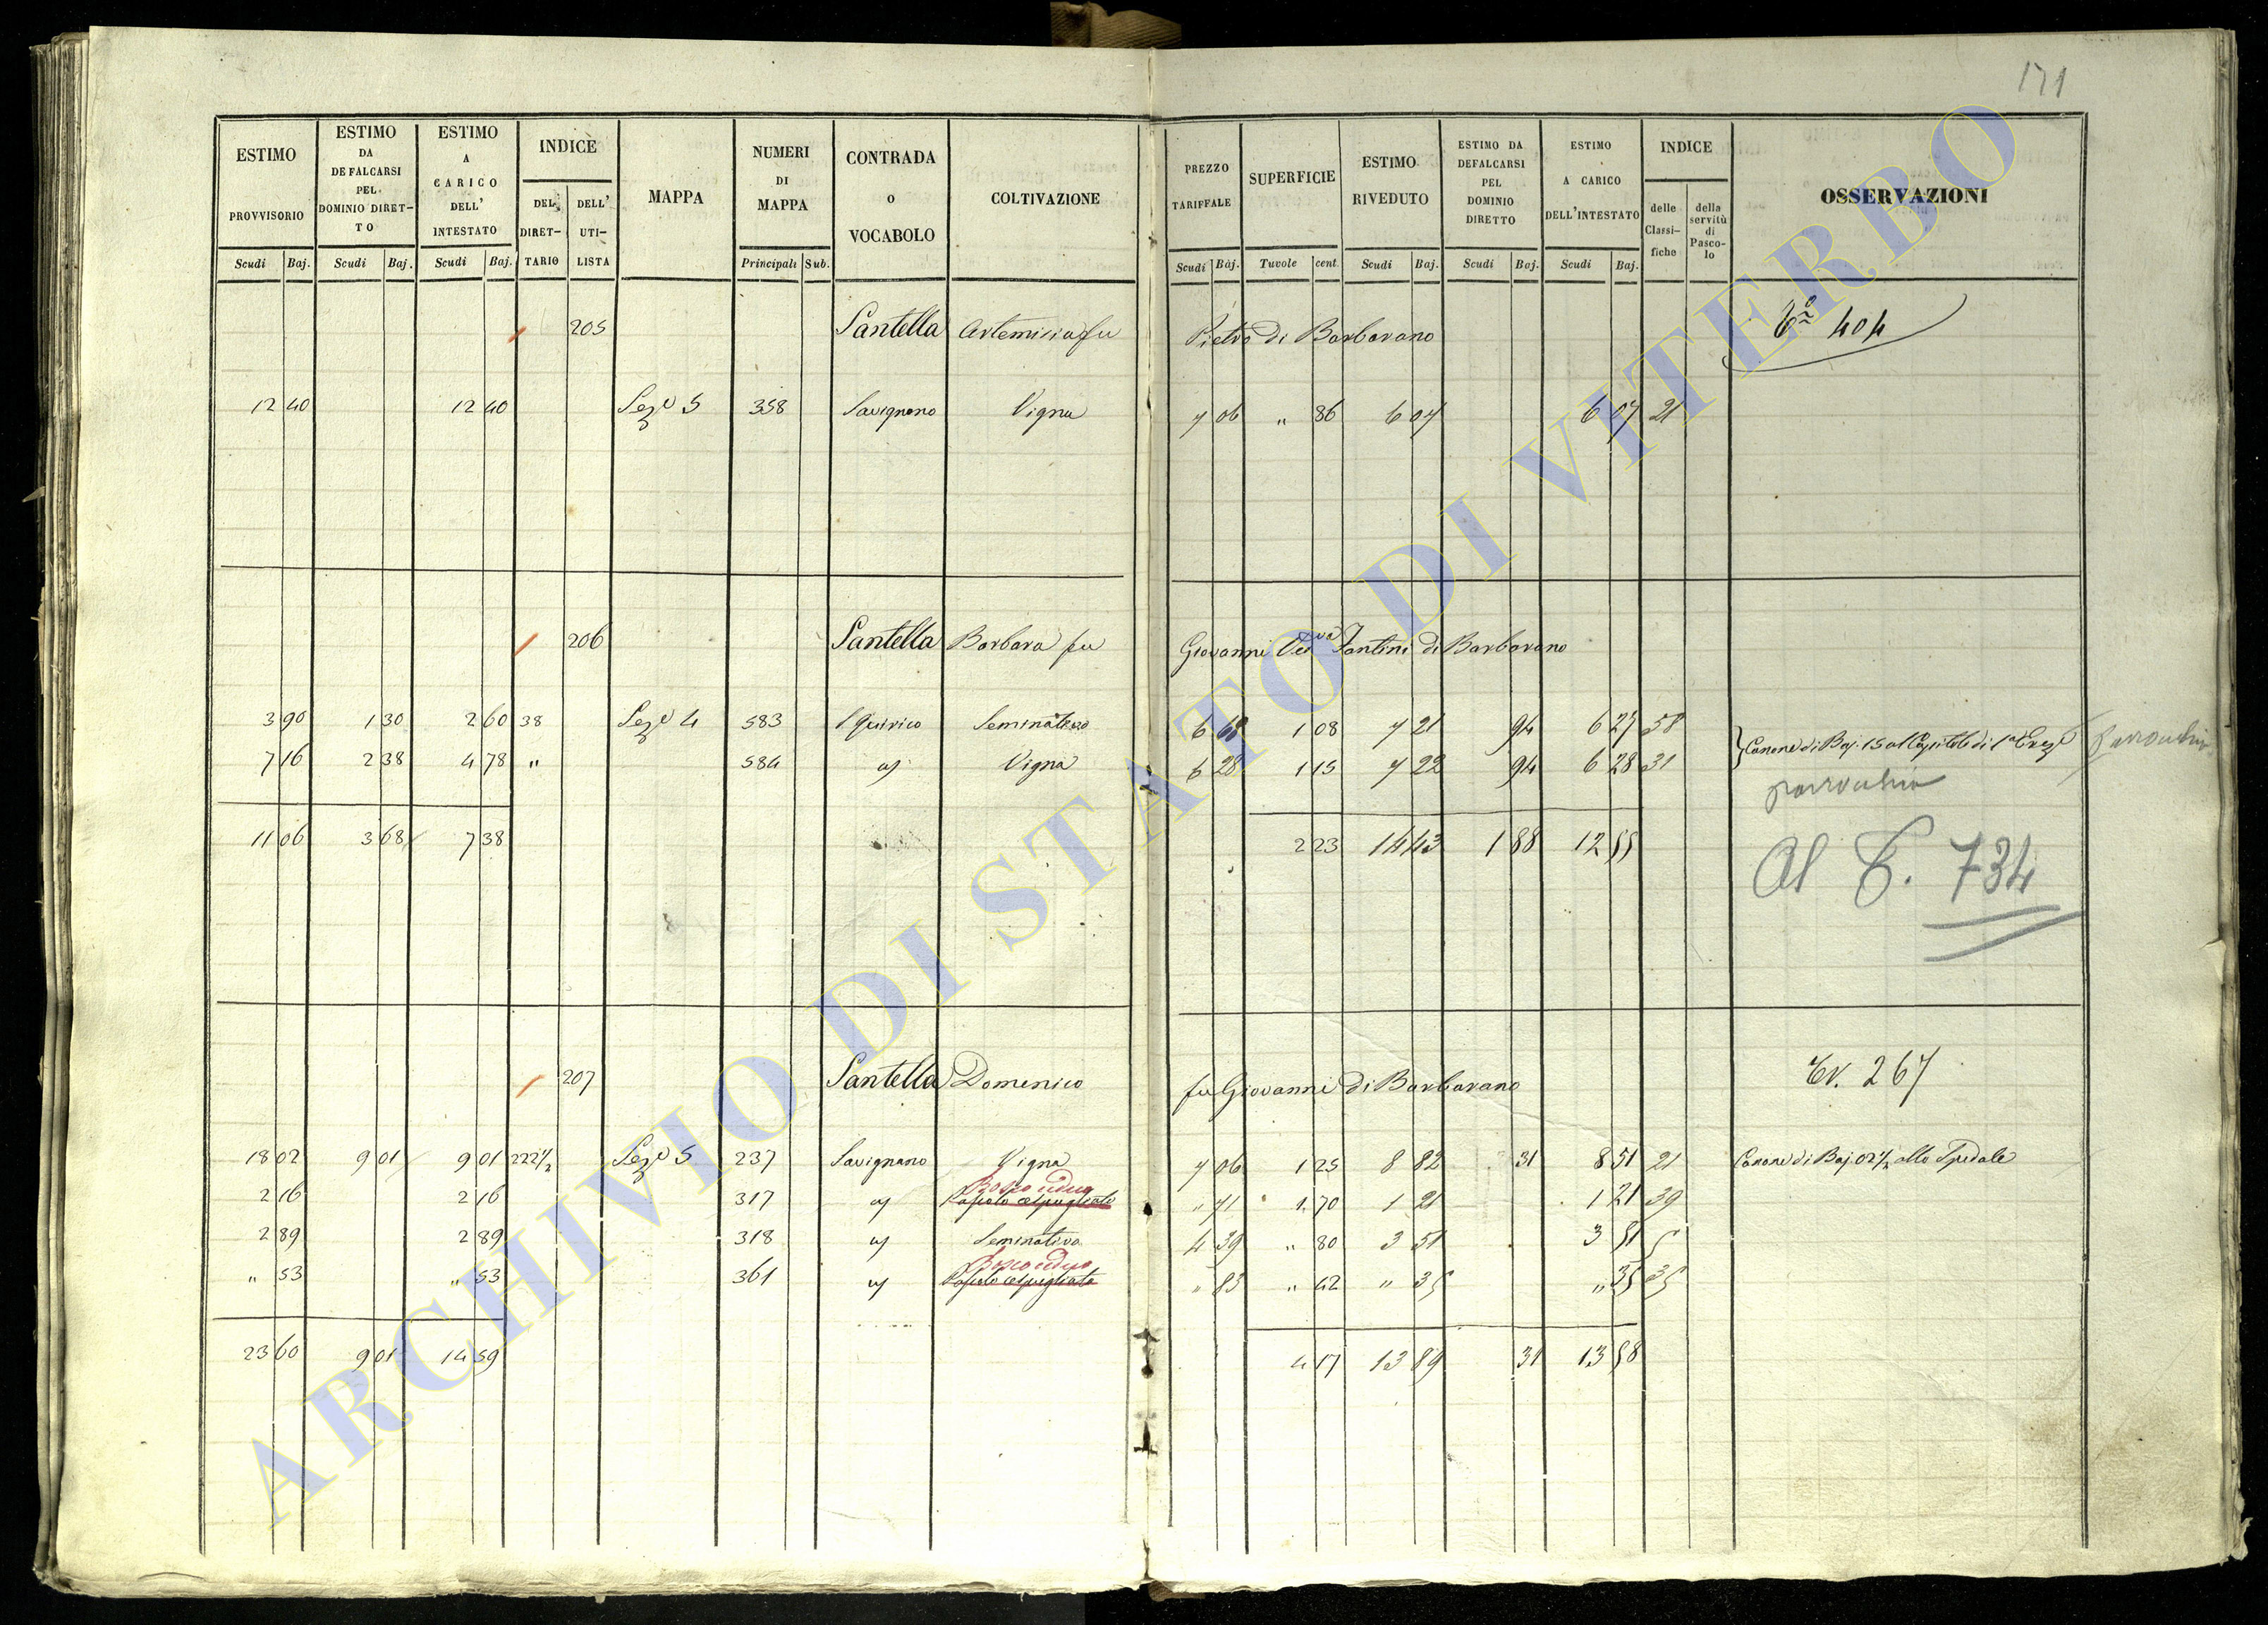 171
ESTIMO PROVVISORIO Scudi Baj.
ESTIMO DA DEFALCARSI PEL DOMINIO DIRET-TO Scudi Baj.
ESTIMO A CARICO DELL' INTESTATO Scudi Baj.
INDICE DEL DIRET-TARIO DELL' UTI-LISTA
MAPPA
NUMERI DI MAPPA Principali Sub.
CONTRADA O VOCABOLO
COLTIVAZIONE
PREZZO TARIFFALE Scudi Baj.
SUPERFICIE Tavole cent.
ESTIMO RIVEDUTO Scudi Baj.
ESTIMO DA DEFALCARSI PEL DOMINIO DIRETTO Scudi Baj.
ESTIMO A CARICO DELL'INTESTATO Scudi Baj.
INDICE delle Classi-fiche della servitù di Pasco-lo
OSSERVAZIONI
205 Santella Artemisia fu Pietro di Barbarano 404
12 40 12 40 Sez.e 5 358 Savignano Vigna 7 06 " 86 6 07 6 07 21
206 Santella Barbara fu Giovanni Ved.va Fantini di Barbarano
3 90 1 30 2 60 38 Sez.e 4 583 S Quirico Seminativo 6 68 1 08 7 21 94 6 27 58
Canone di Baj. 15 al Capitolo di
7 16 2 38 4 78 " 584 Vigna 6 28 1 15 7 22 94 6 28 31
parrocchia
parrocchia
11 06 3 68 7 38 2 23 14 43 1 88 12 55
Al C. 734
207 Santella Domenico fu Giovanni di Barbarano 267
18 02 9 01 9 01 222 1/2 Sez.e 5 237 Savignano Vigna 7 06 1 25 8 82 31 8 51 21 Canone di Baj. 02 1/2 allo Spedale
Bosco ceduo
2 16 2 16 317 Pascolo cespugliato " 71 1 70 1 21 1 21 39
2 89 2 89 318 Seminativo 4 39 " 80 3 51 3 51 5
Bosco ceduo
" 53 " 53 361 Pascolo cespugliato " 83 " 42 " 35 " 35 35
23 60 9 01 14 59 4 17 13 89 31 13 58
ARCHIVIO DI STATO DI VITERBO